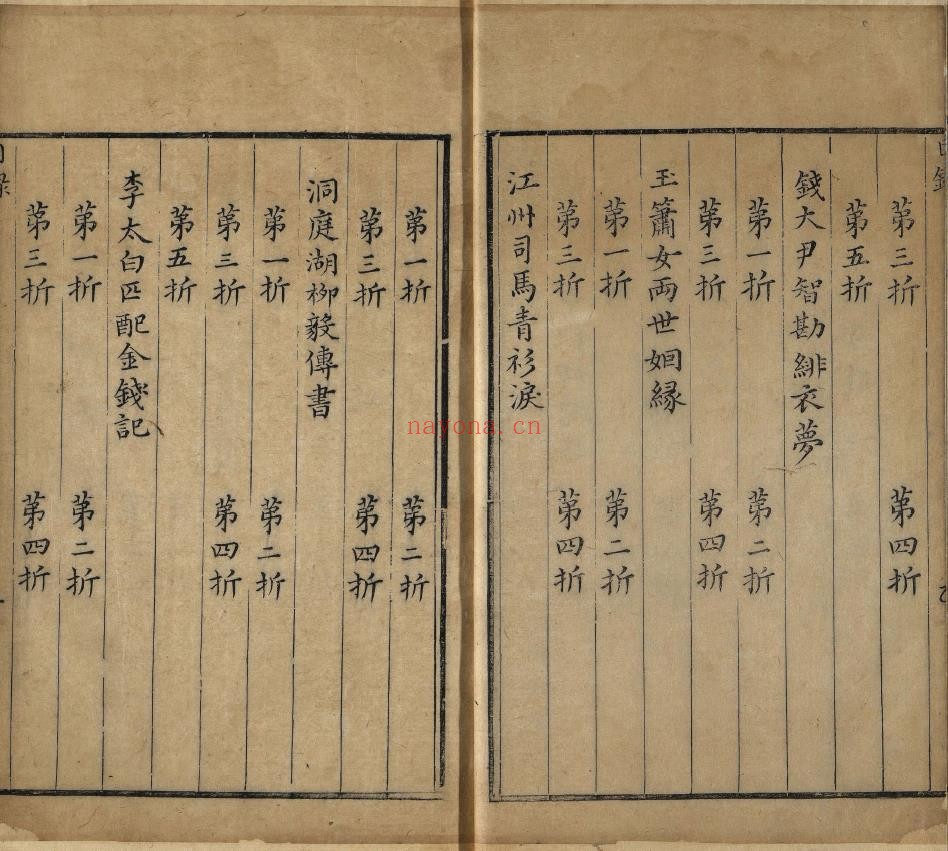 目錄
第三折 第四折
第五折
錢大尹智勘緋衣夢
第一折 第二折
第三折 第四折
玉簫女兩世姻緣
第一折 第二折
第三折 第四折
江州司馬青衫淚
第一折 第二折
第三折 第四折
洞庭湖柳毅傳書
第一折 第二折
第三折 第四折
第五折
李太白匹配金錢記
第一折 第二折
第三折 第四折
nayona.cn